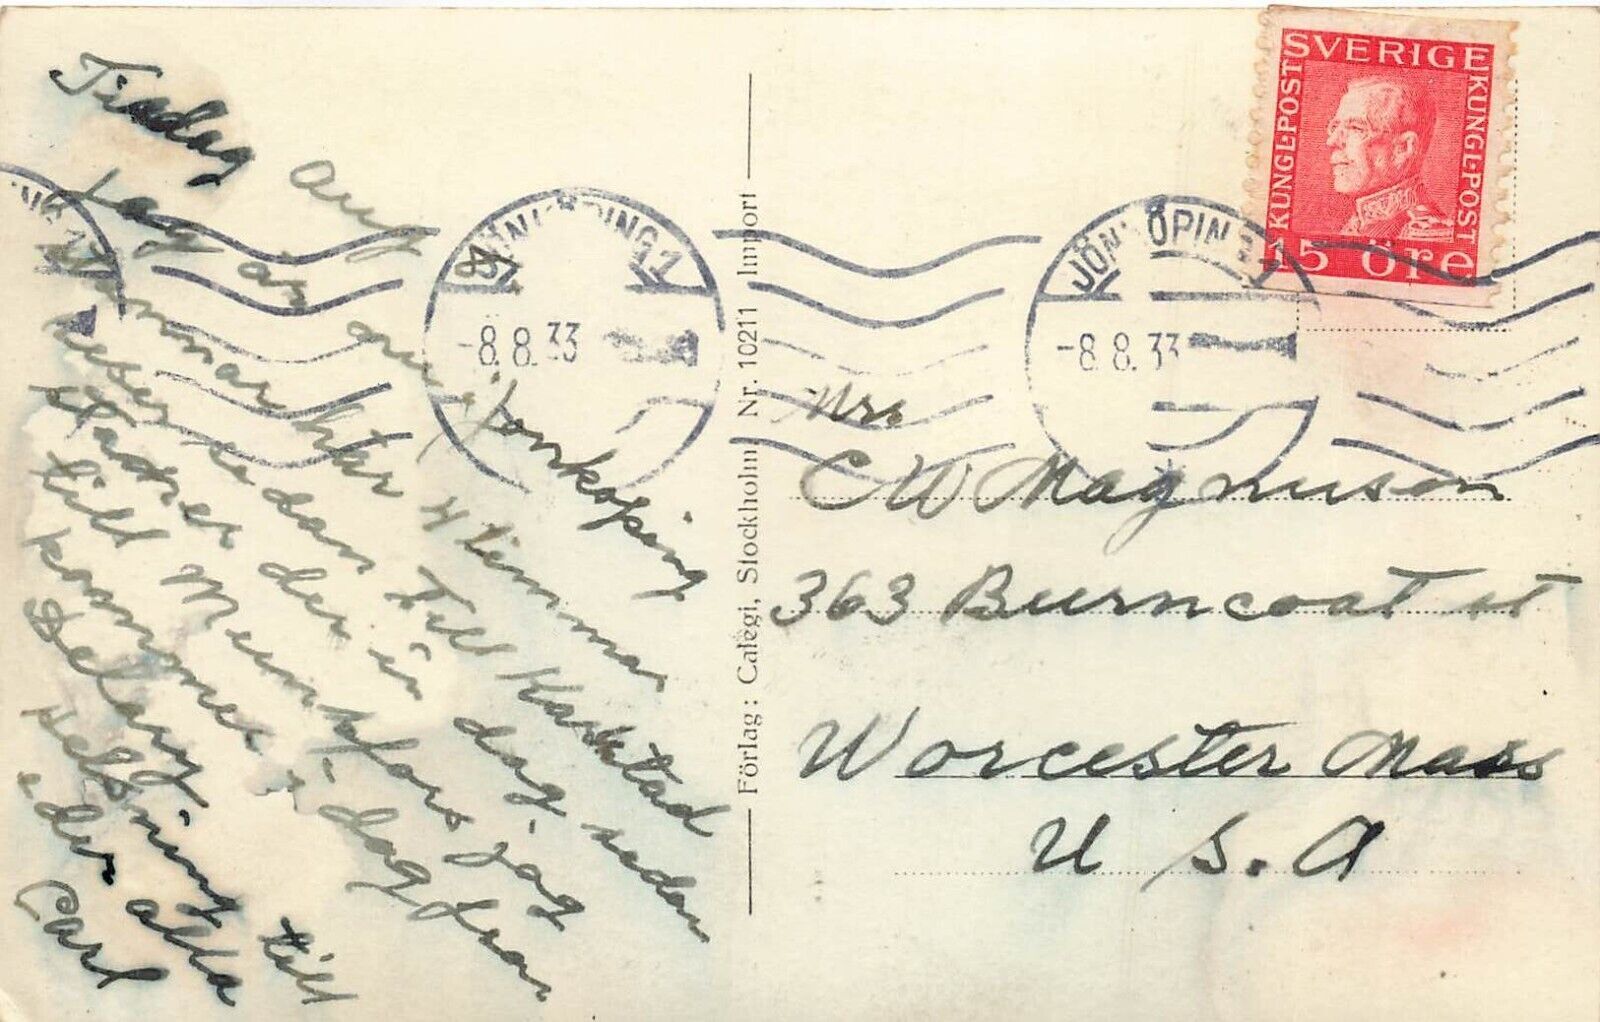 Tisdag Aug 8
Jag är nu i Jonkoping
stannar här 4 timmar
reser se dan till Karlstad
stadnar der i dag sedan
till Munkfors jag
kommer i dag fran
Delary
helsning till
eder alla
Carl
JÖNKÖPING 1
-8.8.33
JÖNKÖPING 1
-8.8.33
Förlag: Calegi, Stockholm Nr. 10211 Import
SVERIGE
KUNGL·POST
KUNGL·POST
15 öre
Mrs
C W Magnuson
363 Burncoat st
Worcester Mass
U S. A